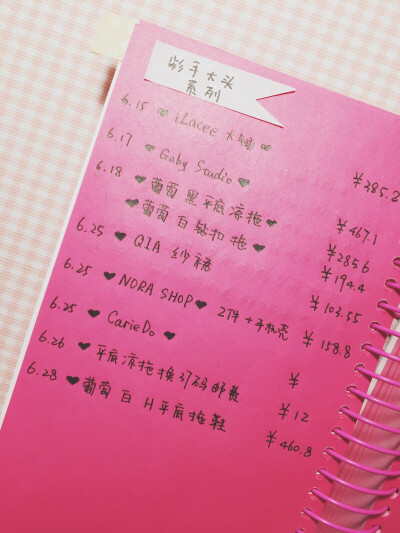 手大头
系列
6.15 iLacee 大 ¥385.2
6.17 ♥ Gaby Studio ♥ ¥467.1
6.18 ♥ 葡萄 黑平底凉拖 ♥ ¥285.6
♥ 葡萄 白 钻扣 拖 ♥ ¥194.4
6.25 ♥ QIA 纱裙 ¥103.55
6.25 ♥ NORA SHOP ♥ 2件+手机壳 ¥158.8
6.25 ♥ CarieDo ♥ ¥
6.26 ♥ 平底凉拖换37码邮差 ¥12
6.28 ♥ 葡萄 白 H平底拖鞋 ¥460.8